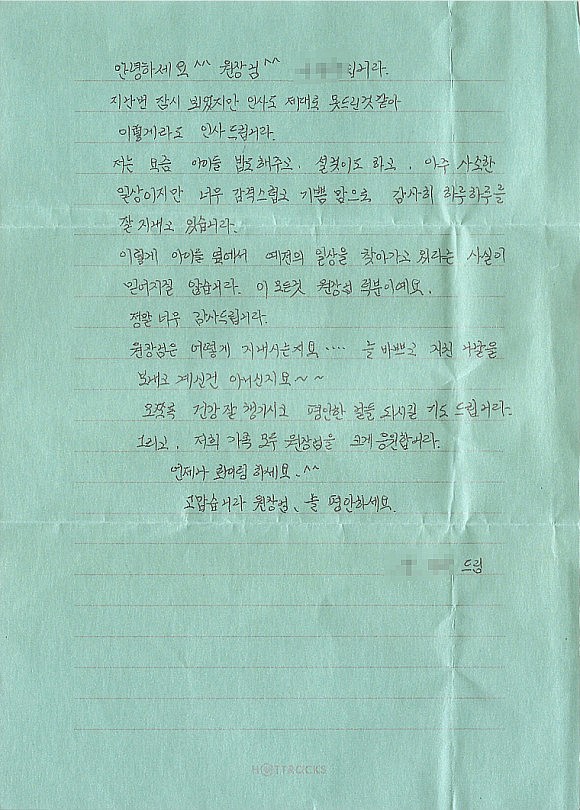 안녕하세요^^ 원장님^^ 입니다.
지난번 잠시 뵈었지만 인사도 제대로 못드린것 같아
이렇게라도 인사드립니다.
저는 요즘 아이들 밥도해주고, 설겆이도 하고, 아주 사소한
일상이지만 너무 감격스럽고 기쁨 맘으로 감사히 하루하루를
잘 지내고 있습니다.
이렇게 아이들 옆에서 예전의 일상을 찾아가고 있다는 사실이
믿어지질 않습니다. 이 모든것 원장님 덕분이예요.
정말 너무 감사드립니다.
원장님은 어떻게 지내시는지요···· 늘 바쁘고 지친 나날을
보내고 계신건 아니신지요~~
모쪼록 건강 잘 챙기시고 평안한 날들 되시길 기도 드립니다.
그리고, 저희 가족 모두 원장님을 크게 응원합니다.
언제나 화이팅 하세요.^^
고맙습니다 원장님, 늘 평안하세요.
드림
HOTTRACKS